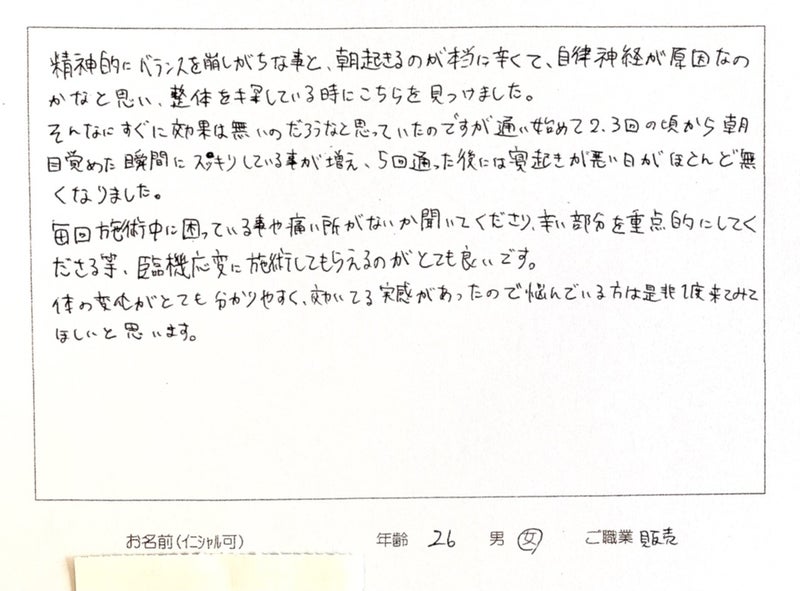 精神的にバランスを崩しがちな事と、朝起きるのが本当に辛くて、自律神経が原因なの
かなと思い、整体を探している時にこちらを見つけました。
そんなにすぐに効果は無いのだろうなと思っていたのですが通い始めて2.3回の頃から朝
目覚めた瞬間にスッキリしている事が増え、5回通った後には寝起きが悪い日がほとんど無
くなりました。
毎回施術中に困っている事や痛い所がないか聞いてくださり、辛い部分を重点的にしてく
ださる等、臨機応変に施術してもらえるのがとても良いです。
体の変化がとても分かりやすく、効いてる実感があったので悩んでいる方は是非1度来てみて
ほしいと思います。
お名前(イニシャル可) 年齢 26 男 女 ご職業 販売